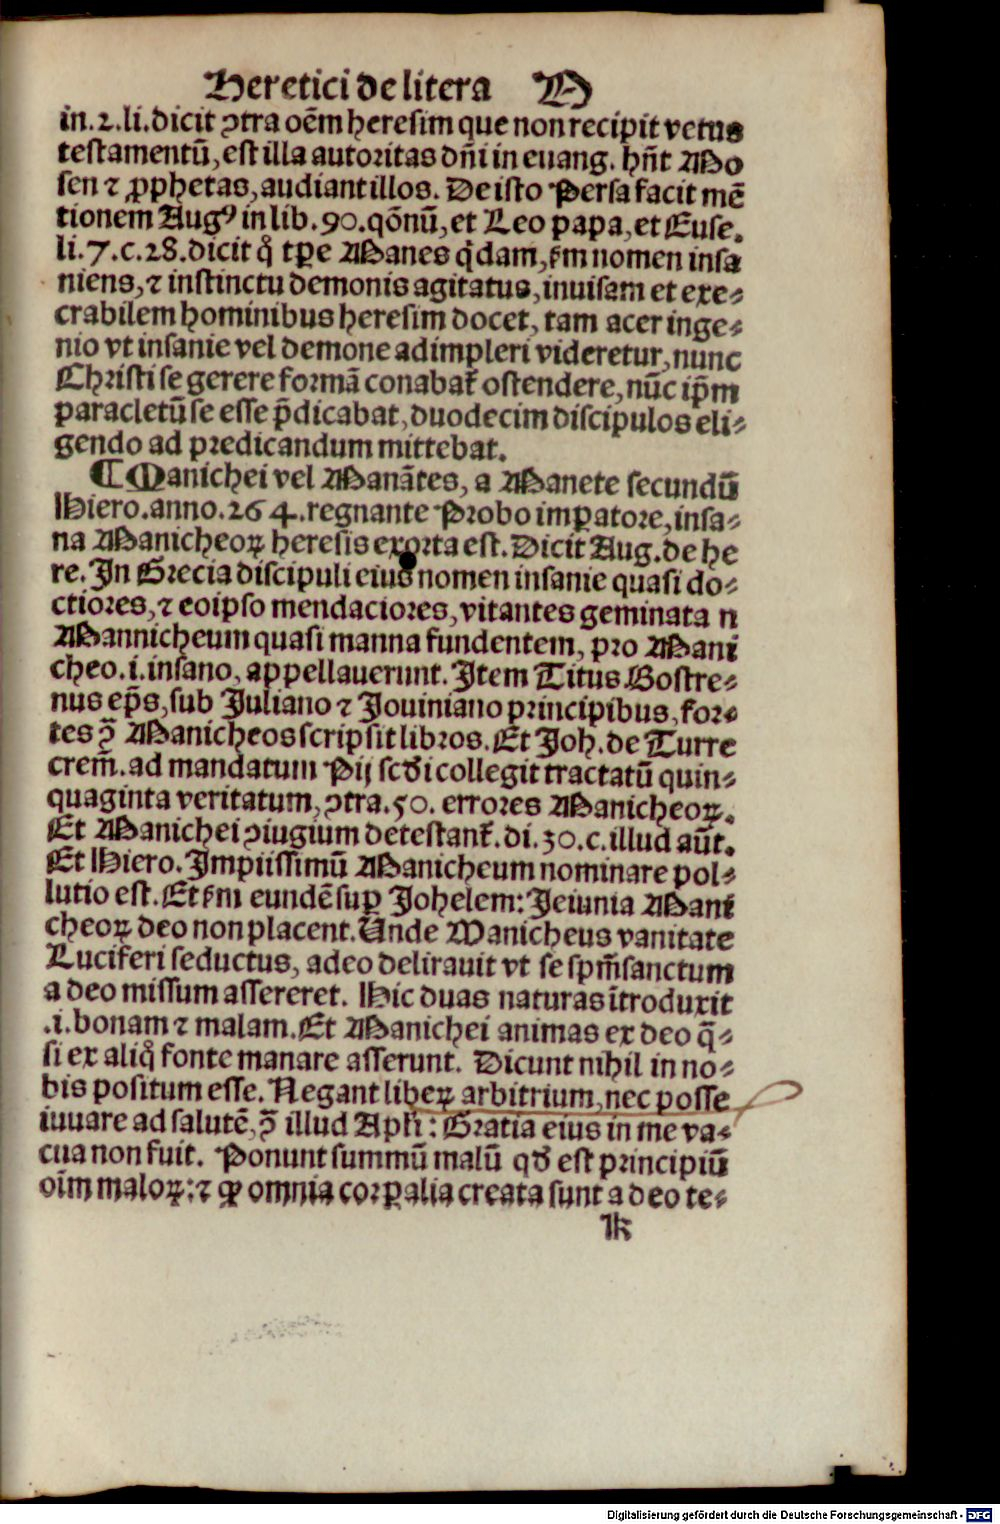 Heretici de litera M
in.2.li.dicit ↄtra oēm heresim que non recipit vetus
testamentū, est illa autoritas dn̄i in euang. hn̄t Mo
sen ⁊ ꝓphetas, audiant illos. De isto Persa facit mē
tionem Augꝰ in lib.90.qōnū, et Leo papa, et Euse.
li.7.c.28.dicit ꝙ tꝑe Manes qͥdam, ẜm nomen insa
niens, ⁊ instinctu demonis agitatus, inuisam et exe⸗
crabilem hominibus heresim docet, tam acer inge⸗
nio vt insanie vel demone adimpleri videretur, nunc
Christi se gerere formā conabat᷑ ostendere, nūc ip̄m
paracletū se esse p̄dicabat, duodecim discipulos eli⸗
gendo ad predicandum mittebat.
¶ Manichei vel Manātes, a Manete secundū
Hiero.anno.264.regnante Probo imꝑatore, insa⸗
na Manicheoꝝ heresis exorta est. Dicit Aug.de he
re. In Grecia discipuli eius nomen insanie quasi do⸗
ctiores, ⁊ eoipso mendaciores, vitantes geminata n
Mannicheum quasi manna fundentem, pro Mani
cheo.i.insano, appellauerunt. Item Titus Bostre⸗
nus ep̄s, sub Juliano ⁊ Jouiniano principibus, for⸗
tes ꝯ̄ Manicheos scripsit libros. Et Joh. de Turre
crem̄. ad mandatum Pij scd̓i collegit tractatū quin⸗
quaginta veritatum, ↄtra.50. errores Manicheoꝝ.
Et Manichei ↄiugium detestant᷑. di.30.c.illud aūt.
Et Hiero. Impiissimū Manicheum nominare pol⸗
lutio est. Et ẜm eundē suꝑ Johelem: Jeiunia Mani
cheoꝝ deo non placent. Unde Manicheus vanitate
Luciferi seductus, adeo delirauit vt se sp̄msanctum
a deo missum assereret. Hic duas naturas ītroduxit
.i.bonam ⁊ malam. Et Manichei animas ex deo q̄⸗
si ex aliqͦ fonte manare asserunt. Dicunt nihil in no⸗
bis positum esse. Negant libeꝝ arbitrium, nec posse
iuuare ad salutē, ꝯ̄ illud Apl̓i: Gratia eius in me va⸗
cua non fuit. Ponunt summū malū qd̓ est principiū
oīm maloꝝ: ⁊ ꝙ omnia corꝑalia creata sunt a deo te⸗
k
Digitalisierung gefördert durch die Deutsche Forschungsgemeinschaft - DFG